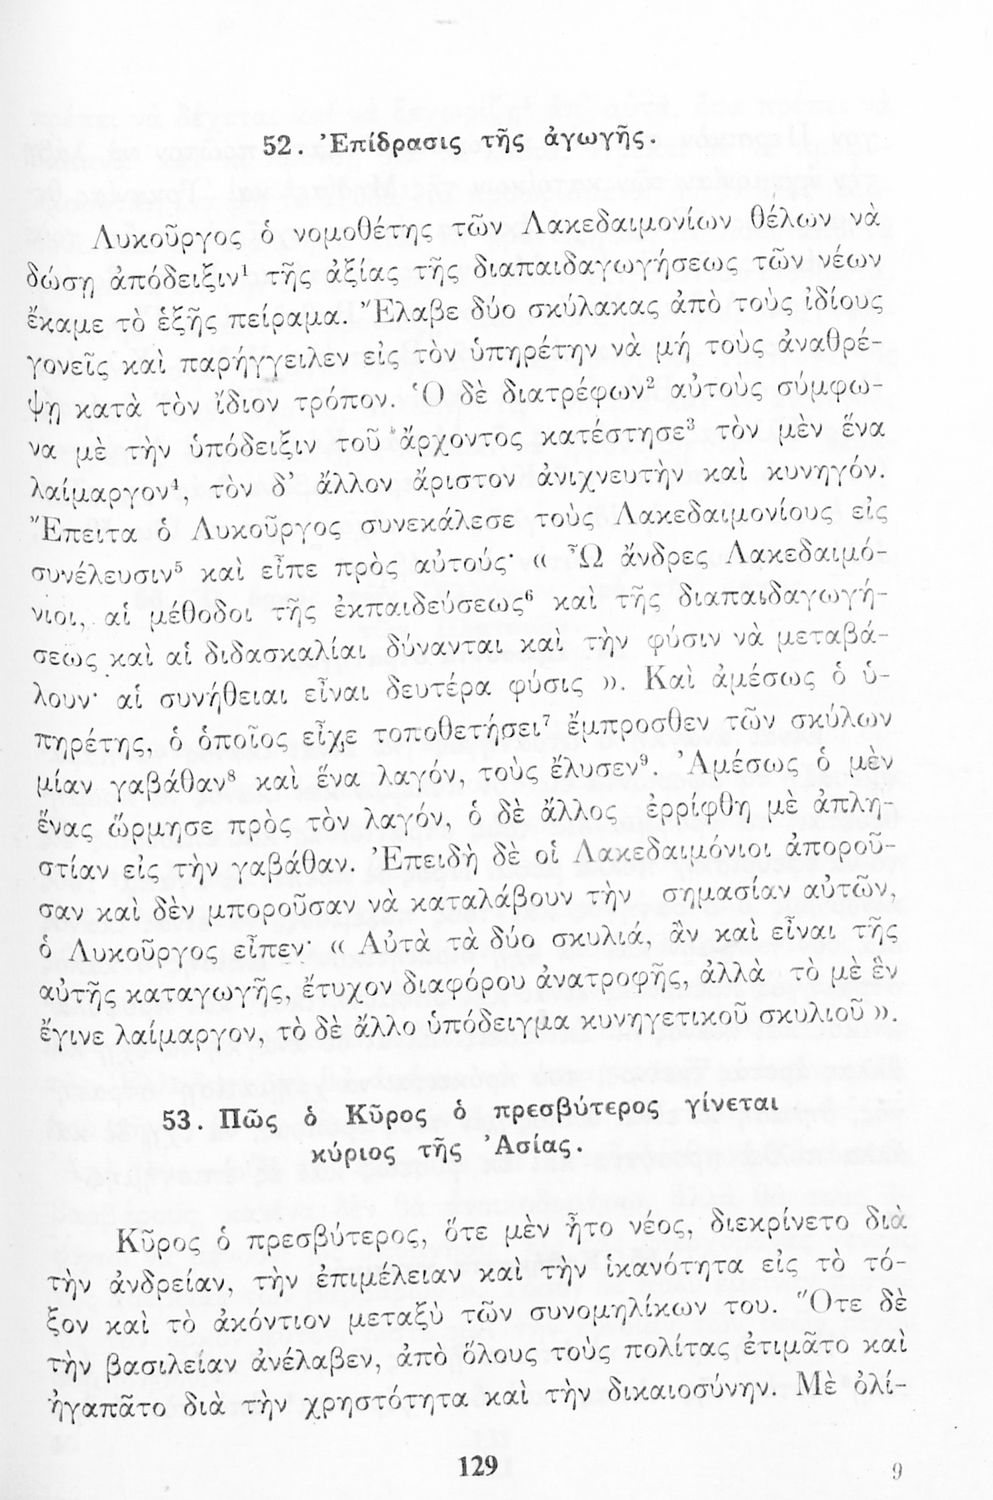 52. Ἐπίδρασις τῆς ἀγωγῆς.
Λυκοῦργος ὁ νομοθέτης τῶν Λακεδαιμονίων θέλων νὰ
δώσῃ ἀπόδειξιν¹ τῆς ἀξίας τῆς διαπαιδαγωγήσεως τῶν νέων
ἔκαμε τὸ ἑξῆς πείραμα. Ἔλαβε δύο σκύλακας ἀπὸ τοὺς ἰδίους
γονεῖς καὶ παρήγγειλεν εἰς τὸν ὑπηρέτην νὰ μή τοὺς ἀναθρέ-
ψῃ κατὰ τὸν ἴδιον τρόπον. Ὁ δὲ διατρέφων² αὐτοὺς σύμφω-
να μὲ τὴν ὑπόδειξιν τοῦ ἄρχοντος κατέστησε³ τὸν μὲν ἕνα
λαίμαργον⁴, τὸν δ’ ἄλλον ἄριστον ἀνιχνευτὴν καὶ κυνηγόν.
Ἔπειτα ὁ Λυκοῦργος συνεκάλεσε τοὺς Λακεδαιμονίους εἰς
συνέλευσιν⁵ καὶ εἶπε πρὸς αὐτούς· « Ὦ ἄνδρες Λακεδαιμό-
νιοι, αἱ μέθοδοι τῆς ἐκπαιδεύσεως⁶ καὶ τῆς διαπαιδαγωγή-
σεως καὶ αἱ διδασκαλίαι δύνανται καὶ τὴν φύσιν νὰ μεταβά-
λουν· αἱ συνήθειαι εἶναι δευτέρα φύσις ». Καὶ ἀμέσως ὁ ὑ-
πηρέτης, ὁ ὁποῖος εἶχε τοποθετήσει⁷ ἔμπροσθεν τῶν σκύλων
μίαν γαβάθαν⁸ καὶ ἕνα λαγόν, τοὺς ἔλυσεν⁹. Ἀμέσως ὁ μὲν
ἕνας ὥρμησε πρὸς τὸν λαγόν, ὁ δὲ ἄλλος ἐρρίφθη μὲ ἀπλη-
στίαν εἰς τὴν γαβάθαν. Ἐπειδὴ δὲ οἱ Λακεδαιμόνιοι ἀποροῦ-
σαν καὶ δὲν μποροῦσαν νὰ καταλάβουν τὴν σημασίαν αὐτῶν,
ὁ Λυκοῦργος εἶπεν· « Αὐτὰ τὰ δύο σκυλιά, ἂν καὶ εἶναι τῆς
αὐτῆς καταγωγῆς, ἔτυχον διαφόρου ἀνατροφῆς, ἀλλὰ τὸ μὲ ἓν
ἔγινε λαίμαργον, τὸ δὲ ἄλλο ὑπόδειγμα κυνηγετικοῦ σκυλιοῦ ».
53. Πῶς ὁ Κῦρος ὁ πρεσβύτερος γίνεται
κύριος τῆς Ἀσίας.
Κῦρος ὁ πρεσβύτερος, ὅτε μὲν ἦτο νέος, διεκρίνετο διὰ
τὴν ἀνδρείαν, τὴν ἐπιμέλειαν καὶ τὴν ἱκανότητα εἰς τὸ τό-
ξον καὶ τὸ ἀκόντιον μεταξὺ τῶν συνομηλίκων του. Ὅτε δὲ
τὴν βασιλείαν ἀνέλαβεν, ἀπὸ ὅλους τοὺς πολίτας ἐτιμᾶτο καὶ
ἠγαπᾶτο διὰ τὴν χρηστότητα καὶ τὴν δικαιοσύνην. Μὲ ὀλί-
129
9